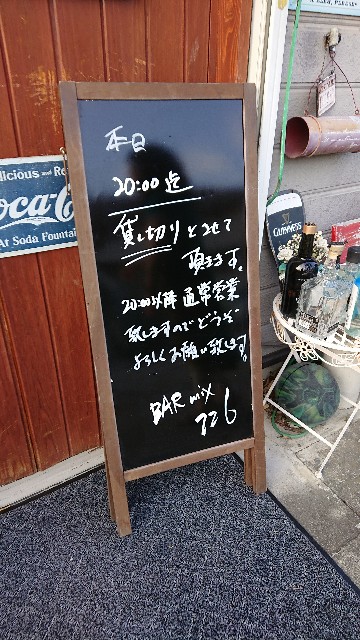 licious and Re
oca-C
At Soda Fountain
本日
20:00迄
貸し切りとさせて
頂きます。
20:00以降 通常営業
致しますのでどうぞ
よろしくお願い致します。
BAR mix
226
GUINNESS